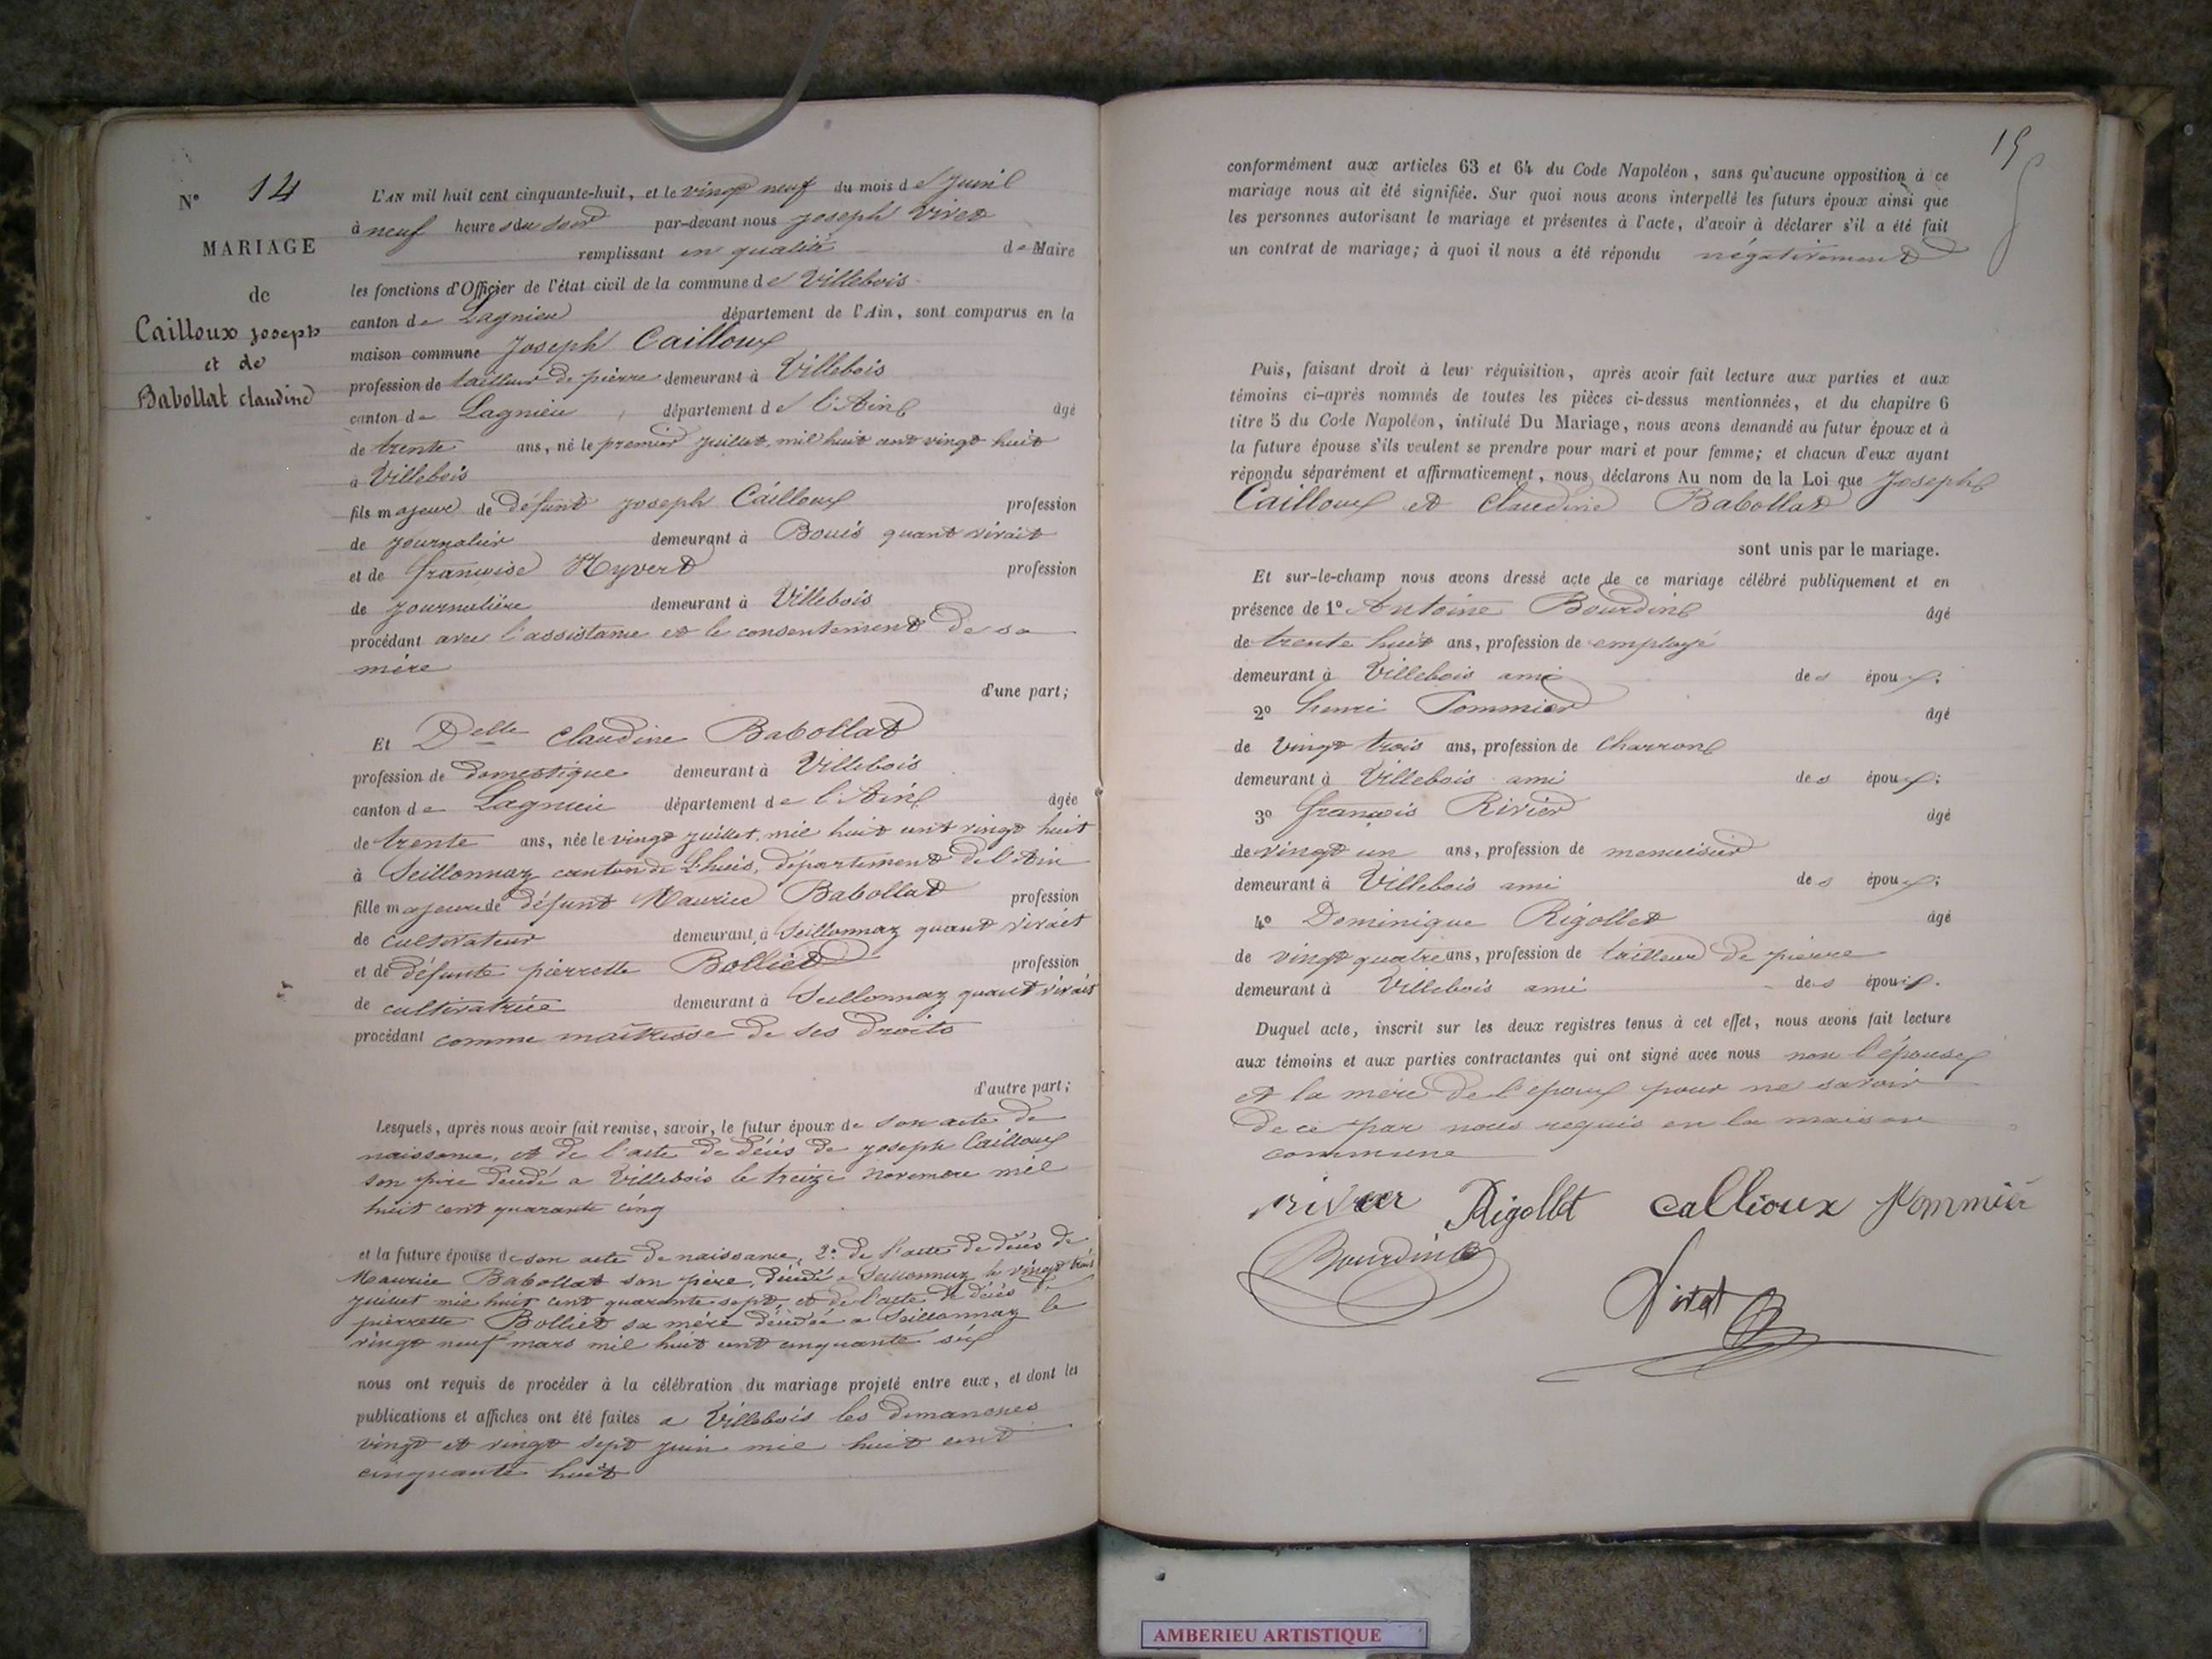 N° 14
MARIAGE
de
Cailloux joseph
et de
Babollat claudine
L'AN mil huit cent cinquante-huit, et le vingt neuf du mois de Juin
à neuf heures du soir par-devant nous joseph Vivet
remplissant en qualité de Maire
les fonctions d'Officier de l'état civil de la commune de Villebois
canton de Lagnieu département de l'Ain, sont comparus en la
maison commune Joseph Cailloux
profession de tailleur de pierre demeurant à Villebois
canton de Lagnieu département de l'Ain âgé
de trente ans, né le premier juillet mil huit cent vingt huit
à Villebois
fils majeur de défunt joseph Cailloux profession
de journalier demeurant à Bouis quant vivait
et de françoise Hyvert profession
de journalière demeurant à Villebois
procédant avec l'assistance et le consentement de sa
mère
d'une part;
Et Delle Claudine Babollat
profession de domestique demeurant à Villebois
canton de Lagnieu département de l'Ain âgée
de trente ans, née le vingt juillet mil huit cent vingt huit
à Seillonnaz canton de Lhuis, département de l'Ain
fille majeure de défunt Maurice Babollat profession
de cultivateur demeurant à Seillonnaz quant vivait
et de défunte pierrette Bolliet profession
de cultivatrice demeurant à Seillonnaz quant vivait
procédant comme maîtresse de ses droits
d'autre part;
Lesquels, après nous avoir fait remise, savoir, le futur époux de son acte de
naissance, et de l'acte de décès de joseph Cailloux
son père décédé a Villebois le treize novembre mil
huit cent quarante cinq
et la future épouse de son acte de naissance, 2° de l'acte de décès de
Maurice Babollat son père, décédé a Seillonnaz le vingt trois
juillet mil huit cent quarante sept, et de l'acte de décès de
pierrette Bolliet sa mère décédée a Seillonnaz le
vingt neuf mars mil huit cent cinquante six
nous ont requis de procéder à la célébration du mariage projeté entre eux, et dont les
publications et affiches ont été faites a Villebois les dimanches
vingt et vingt sept juin mil huit cent
cinquante huit
15
conformément aux articles 63 et 64 du Code Napoléon, sans qu'aucune opposition à ce
mariage nous ait été signifiée. Sur quoi nous avons interpellé les futurs époux ainsi que
les personnes autorisant le mariage et présentes à l'acte, d'avoir à déclarer s'il a été fait
un contrat de mariage; à quoi il nous a été répondu négativement
Puis, faisant droit à leur réquisition, après avoir fait lecture aux parties et aux
témoins ci-après nommés de toutes les pièces ci-dessus mentionnées, et du chapitre 6
titre 5 du Code Napoléon, intitulé Du Mariage, nous avons demandé au futur époux et à
la future épouse s'ils veulent se prendre pour mari et pour femme; et chacun d'eux ayant
répondu séparément et affirmativement, nous déclarons Au nom de la Loi que Joseph
Cailloux et Claudine Babollat
sont unis par le mariage.
Et sur-le-champ nous avons dressé acte de ce mariage célébré publiquement et en
présence de 1° Antoine Bourdin âgé
de trente huit ans, profession de employé
demeurant à Villebois ami des époux;
2° henri Pommier âgé
de vingt trois ans, profession de charron
demeurant à Villebois ami des époux;
3° françois Rivier âgé
de vingt un ans, profession de menuisier
demeurant à Villebois ami des époux;
4° Dominique Rigollet âgé
de vingt quatre ans, profession de tailleur de pierre
demeurant à Villebois ami des époux.
Duquel acte, inscrit sur les deux registres tenus à cet effet, nous avons fait lecture
aux témoins et aux parties contractantes qui ont signé avec nous non l'épouse
et la mère de l'époux pour ne savoir
de ce par nous requis en la maison
commune
rivier Rigollet callioux Pommier
Bourdin
Vivet
AMBERIEU ARTISTIQUE